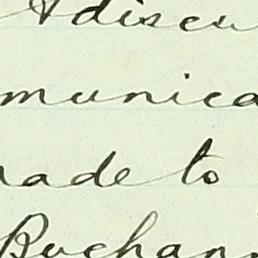 A discu
munica
made to
Buchan